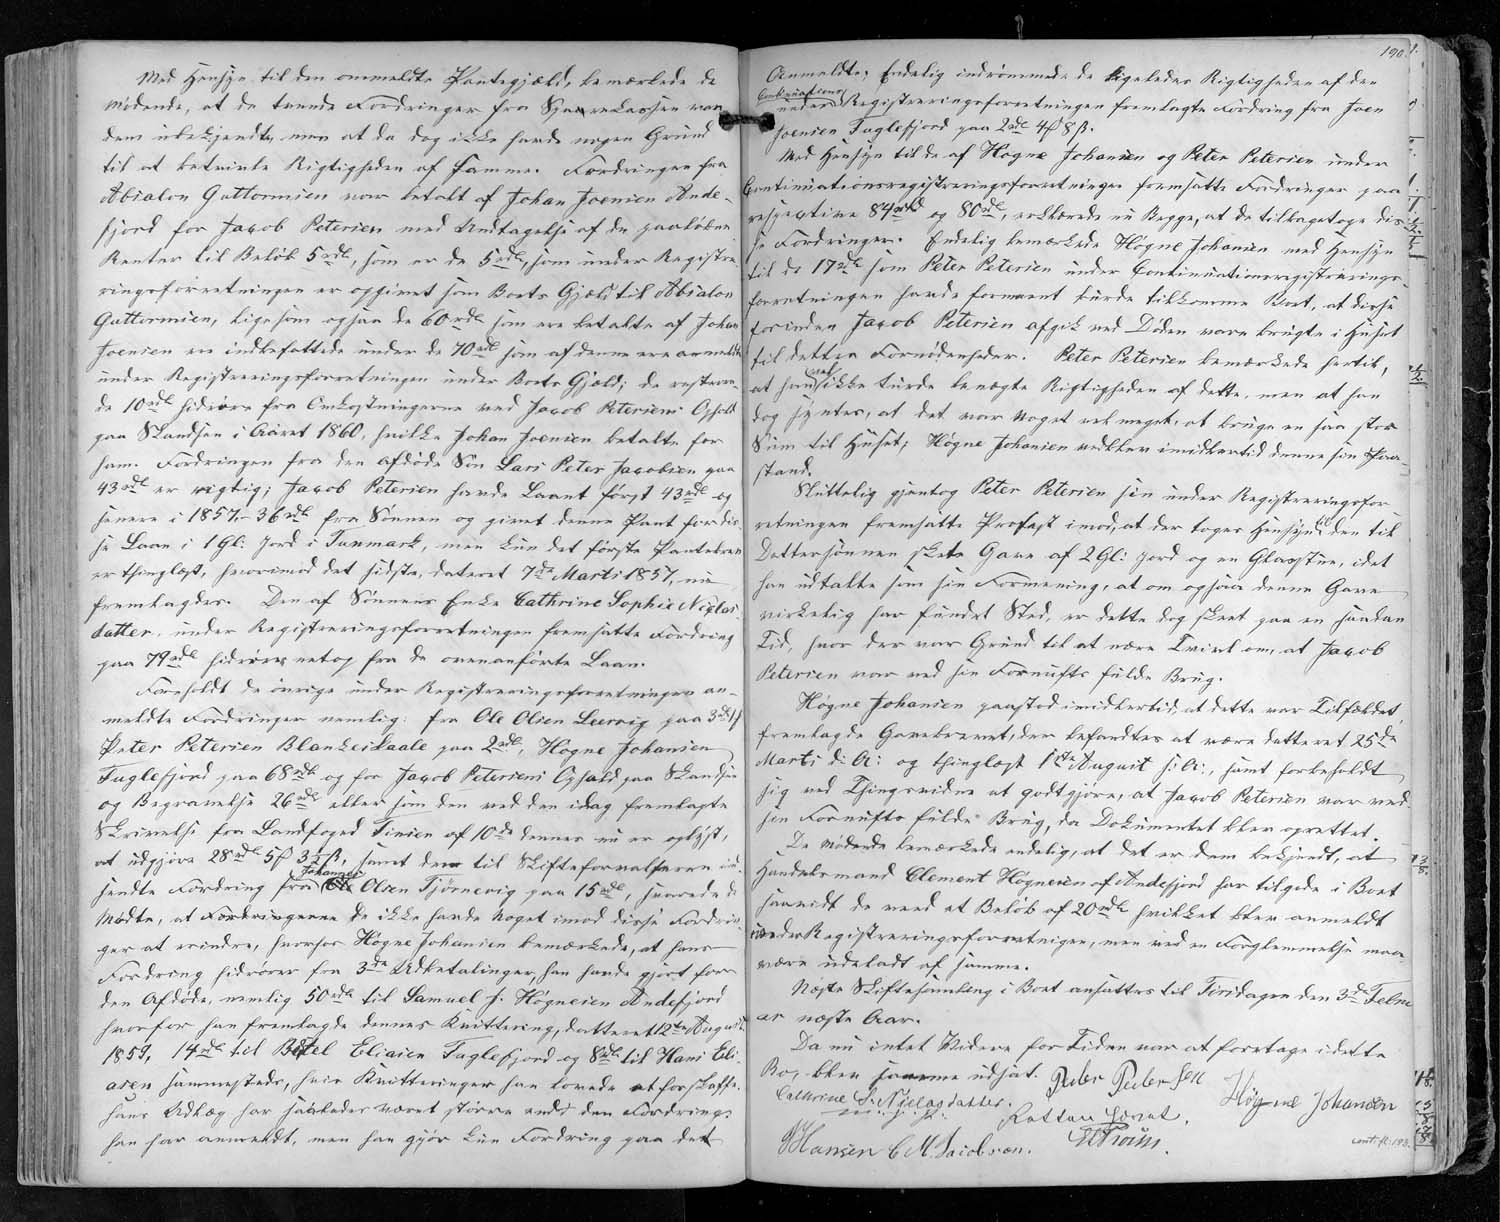 Med Hensyn til den anmeldte Pantegjæld, bemærkede de
Mødende, at de tvende Fordringer fra Sparekassen var
dem ubekjendte, men at de dog ikke havde nogen Grund
til at betvivle Rigtigheden af samme. Fordringen fra
Abialon Guttormsen var betalt af Johan Joensen Ande-
fjord for Jacob Petersen med Undtagelse af de paaløbne
Renter til Beløb 5 rdl, som er de 5 rdl, som under Registre-
ringsforretningen er opgivet som Boets Gjæld til Abialon
Guttormsen, ligesom ogsaa de 60 rdl som ere betalte af Johan
Joensen ere indbefattede under de 70 rdl som af denne ere anmeldte
under Registreringsforretningen under Boets Gjæld; de resteren-
de 10 rdl hidrøre fra Omkostningerne ved Jacob Petersens Ophold
paa Skandsen i Aaret 1860, hvilke Johan Joensen betalte for
ham. Fordringen fra den afdøde Søn Lars Peter Jacobsen paa
43 rdl er rigtig; Jacob Petersen havde laant først 43 rdl og
senere i 1857 36 rdl fra Sønnen og givet denne Pant for dis-
se Laan i 1 Gl: Jord i Tunmark, men kun det første Pantebrev
er thinglæst, hvorimod det sidste, dateret 7de Marts 1857, nu
fremlagdes. Den af Sønnens Enke Cathrine Sophie Niclas-
datter, under Registreringsforretningen fremsatte Fordring
paa 79 rdl hidrører netop fra de ovenanførte Laan.
Foreholdt de øvrige under Registreringsforretningen an-
meldte Fordringer nemlig: fra Ole Olsen Leervig paa 3 rdl 1 ₰
Peter Petersen Blankeskaale paa 2 rdl, Høgne Johansen
Fuglefjord paa 68 rdl og for Jacob Petersens Ophold paa Skandsen
og Begravelse 26 rdl eller som den ved den idag fremlagte
Skrivelse fra Landfoged Finsen af 10de dennes nu er oplyst,
at udgjøre 28 rdl 5 ₰ 3½ ß, samt den til Skifteforvalteren ind-
Johannes
sendte Fordring fra Olsen Tjørnevig paa 15 rdl, svarede de
Mødte, at de ikke havde noget imod disse Fordrin-
ger at erindre, hvorhos Høgne Johansen bemærkede, at hans
Fordring hidrører fra 3de Udbetalinger, han havde gjort for
den Afdøde, nemlig 50 rdl til Samuel J. Høgnesen Andefjord
hvorfor han fremlagde dennes Kvittering, datteret 12te August
1859, 14 rdl til Elias Eliasen Fuglefjord og 8 rdl til Hans Eli-
asen sammesteds, hvis Kvitteringer han lovede at forskaffe.
Hans Udlæg har saaledes været større end den Fordring,
han har anmeldt, men han gjør kun Fordring paa det
190.
Anmeldte; Endelig indrømmede de ligeledes Rigtigheden af den
Continuations
under Registreringsforretningen fremlagte Fordring fra Joen
Joensen Fuglefjord paa 2 rdl 4 ₰ 8 ß.
Med Hensyn til de af Høgne Johansen og Peter Petersen under
Continuationsregistreringsforretningen fremsatte Fordringer paa
respective 84 rdl og 80 rdl, erklærede nu Begge, at de tilbagetoge dis-
se Fordringer. Endelig bemærkede Høgne Johansen med Hensyn
til de 17 rdl som Peter Petersen under Continuationsregistrerings-
forretningen havde formeent burde tilkomme Boet, at disse
forinden Jacob Petersen afgik ved Døden vare brugte i Huset
til dettes Fornødenheder. Peter Petersen bemærkede hertil,
vel
at han ikke turde benægte Rigtigheden af dette, men at han
dog syntes, at det var noget vel meget at bruge en saa stor
Sum til Huset; Høgne Johansen vedblev imidlertid denne sin Paa-
stand.
Sluttelig gjentog Peter Petersen sin under Registreringsfor-
retningen fremsatte Protest imod, at der toges Hensyn til den til
Dattersønnen skete Gave af 2 Gl: Jord og en Glasstue, idet
han udtalte som sin Formening, at om ogsaa denne Gave
virkelig har fundet Sted, er dette dog skeet paa en saadan
Tid, hvor der var Grund til at nære Tvivl om, at Jacob
Petersen var ved sin Fornufts fulde Brug.
Høgne Johansen paastod imidlertid, at dette var Tilfældet,
fremlagde Gavebrevet, der befandtes at være datteret 25de
Marts d: A: og thinglæst 1ste August s: A:, samt forbeholdt
sig ved Thingsvidne at godtgjøre, at Jacob Petersen var ved
sin Fornufts fulde Brug, da Dokumentet blev oprettet.
De Mødende bemærkede endelig, at det er dem bekjendt, at
Handelsmand Clement Høgnesen af Andefjord har tilgode i Boet
saavidt de veed et Beløb af 20 rdl hvilket blev anmeldt
under Registreringsforretningen, men ved en Forglemmelse maa
være udeladt af samme.
Næste Skiftesamling i Boet ansattes til Tirsdagen den 3de Febru-
ar næste Aar.
Da nu intet Videre for Tiden var at foretage i dette
Bo, blev samme udsat. Peder Pedersen
Cathrine S. Niclasdatter. Høgne Johansen
m. f. P.
Retten hævet.
HHansen C M. Jacobsen.
cont. fl: 193.